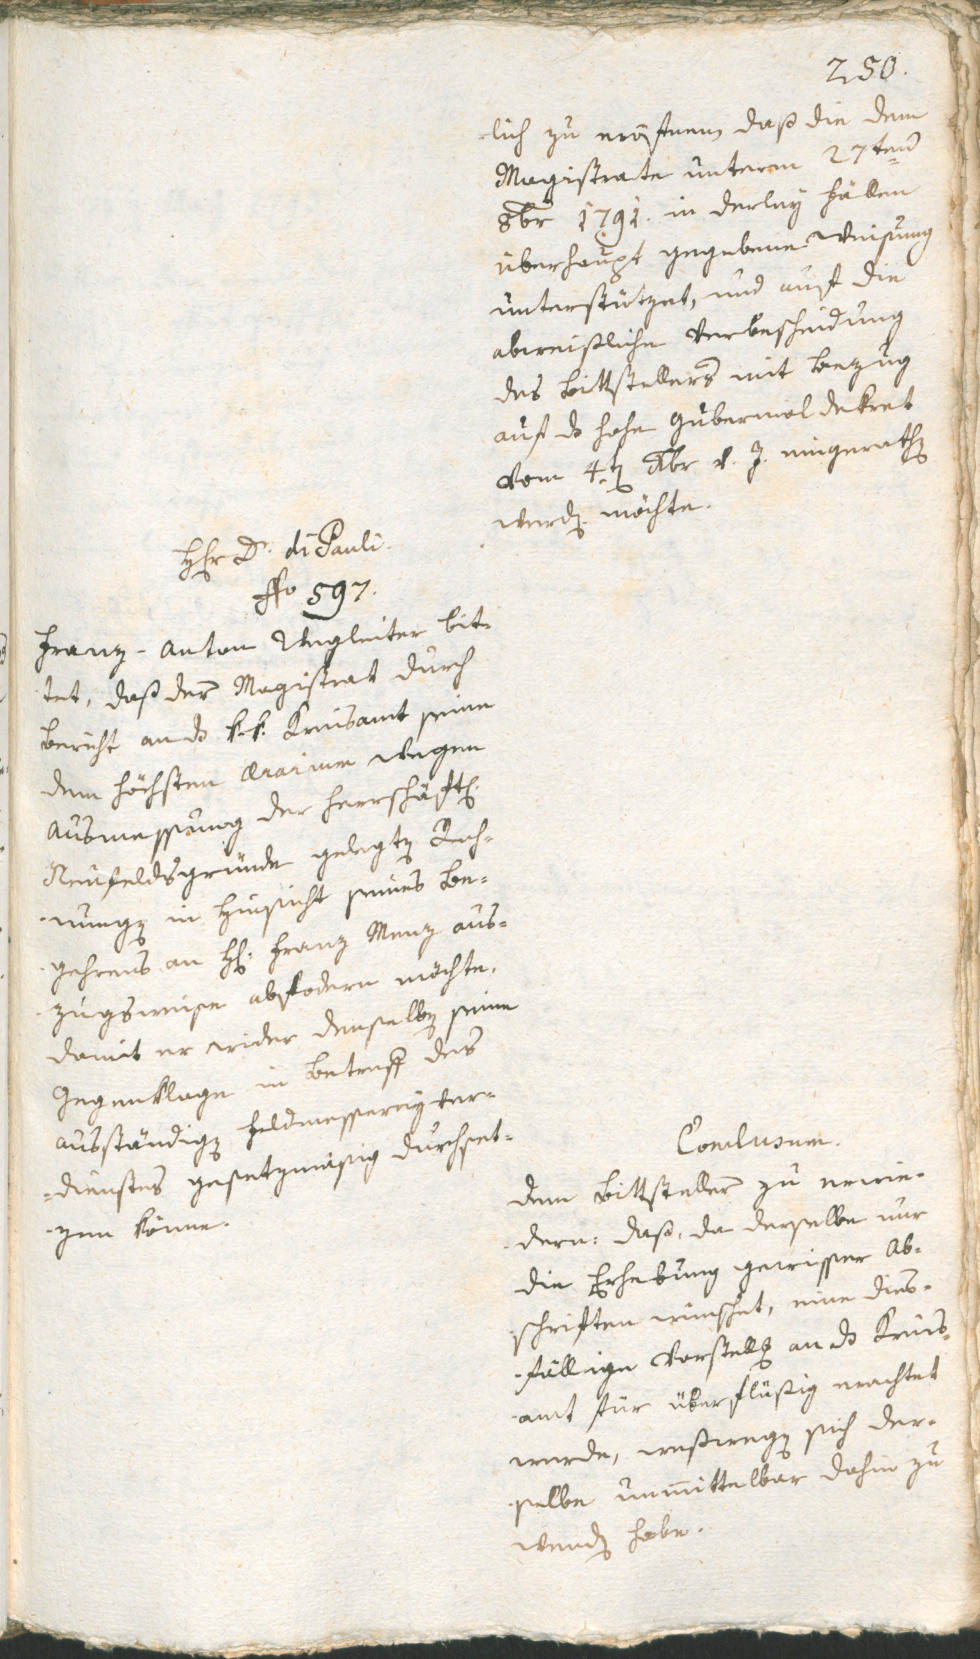 250.
lich zu eröfnen, daß die dem
Magistrate unterm 27ten
8br 1791. in derley Fällen
überhaupt gegebene Weisung
unterstützet, und auf die
abweißliche Verbescheidung
des Bittstellers mit Bezug
auf das hohe Gubernial Dekret
vom 4ten Xbr v. J. eingerathen
werden möchte.
Hhr Dr. di Pauli.
597.
Franz-Anton Wegleiter bit-
tet, daß der Magistrat durch
Bericht an das k.k. Kreisamt seine
dem höchsten Aerarium wegen
Ausmessung der herrschäftl.
Neufeldsgründe gelegten Rech-
nungen in Hinsicht seines Be-
gehrens an H. Franz Menz aus-
zugsweise abfodern möchte,
damit er wider denselben seine
Gegenklage in Betreff des
ausständigen Feldmesserey Ver-
dienstes gesetzmäsig durchset-
zen könne.
Conclusum.
Dem Bittsteller zu erwie-
dern: daß, da derselbe nur
die Erhebung gewisser Ab-
schriften wünschet, eine dies-
fällige Vorstellung an das Kreis-
amt für überflüßig erachtet
werde, weßwegen sich der-
selbe unmittelbar dahin zu
wenden habe.